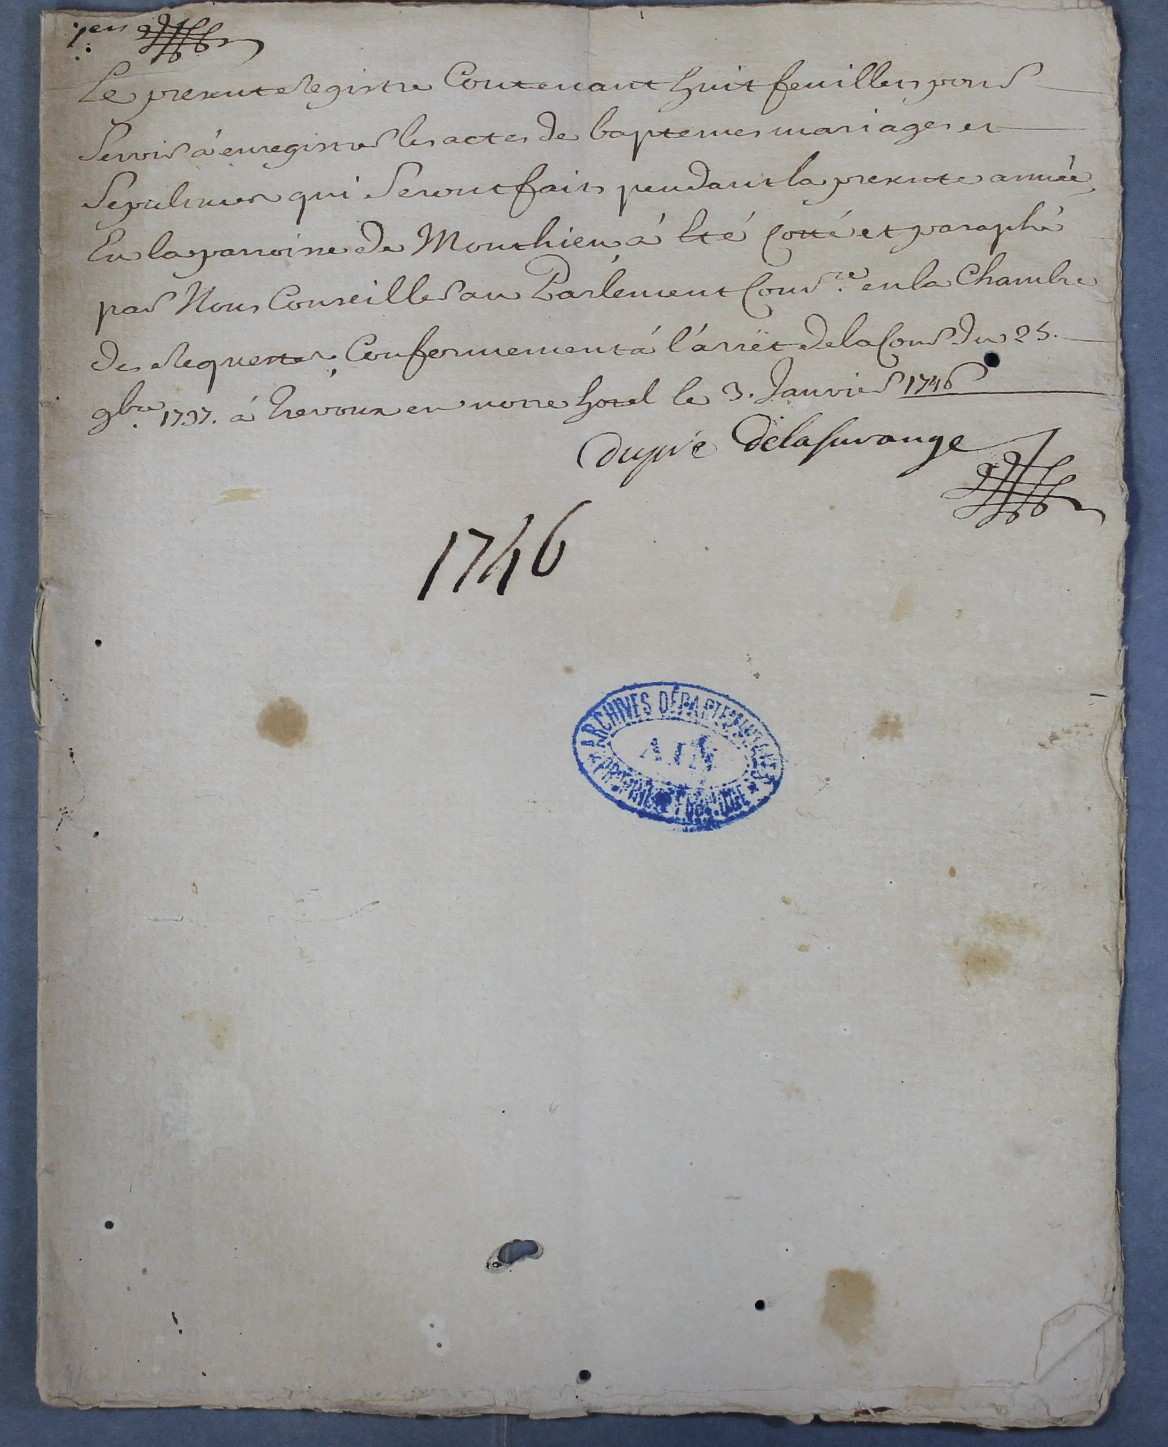 1er
Le present Registre Contenant huit feuillets pour
Servir a enregistrer les actes de baptemes mariages et
Sepultures qui Seront faits pendant la presente année
En la parroisse de Monthieu à Eté Cotté et paraphé
par Nous Conseiller au Parlement Comre. en la Chambre
des Requestes, Conformement à l'arrêt de la Cour du 25.
9bre. 1737. à Trevoux en notre hotel le 3. Janvier 1746
dupré
1746
ARCHIVES DÉPARTEMENTALES
AIN
PROPRIÉTÉ PUBLIQUE